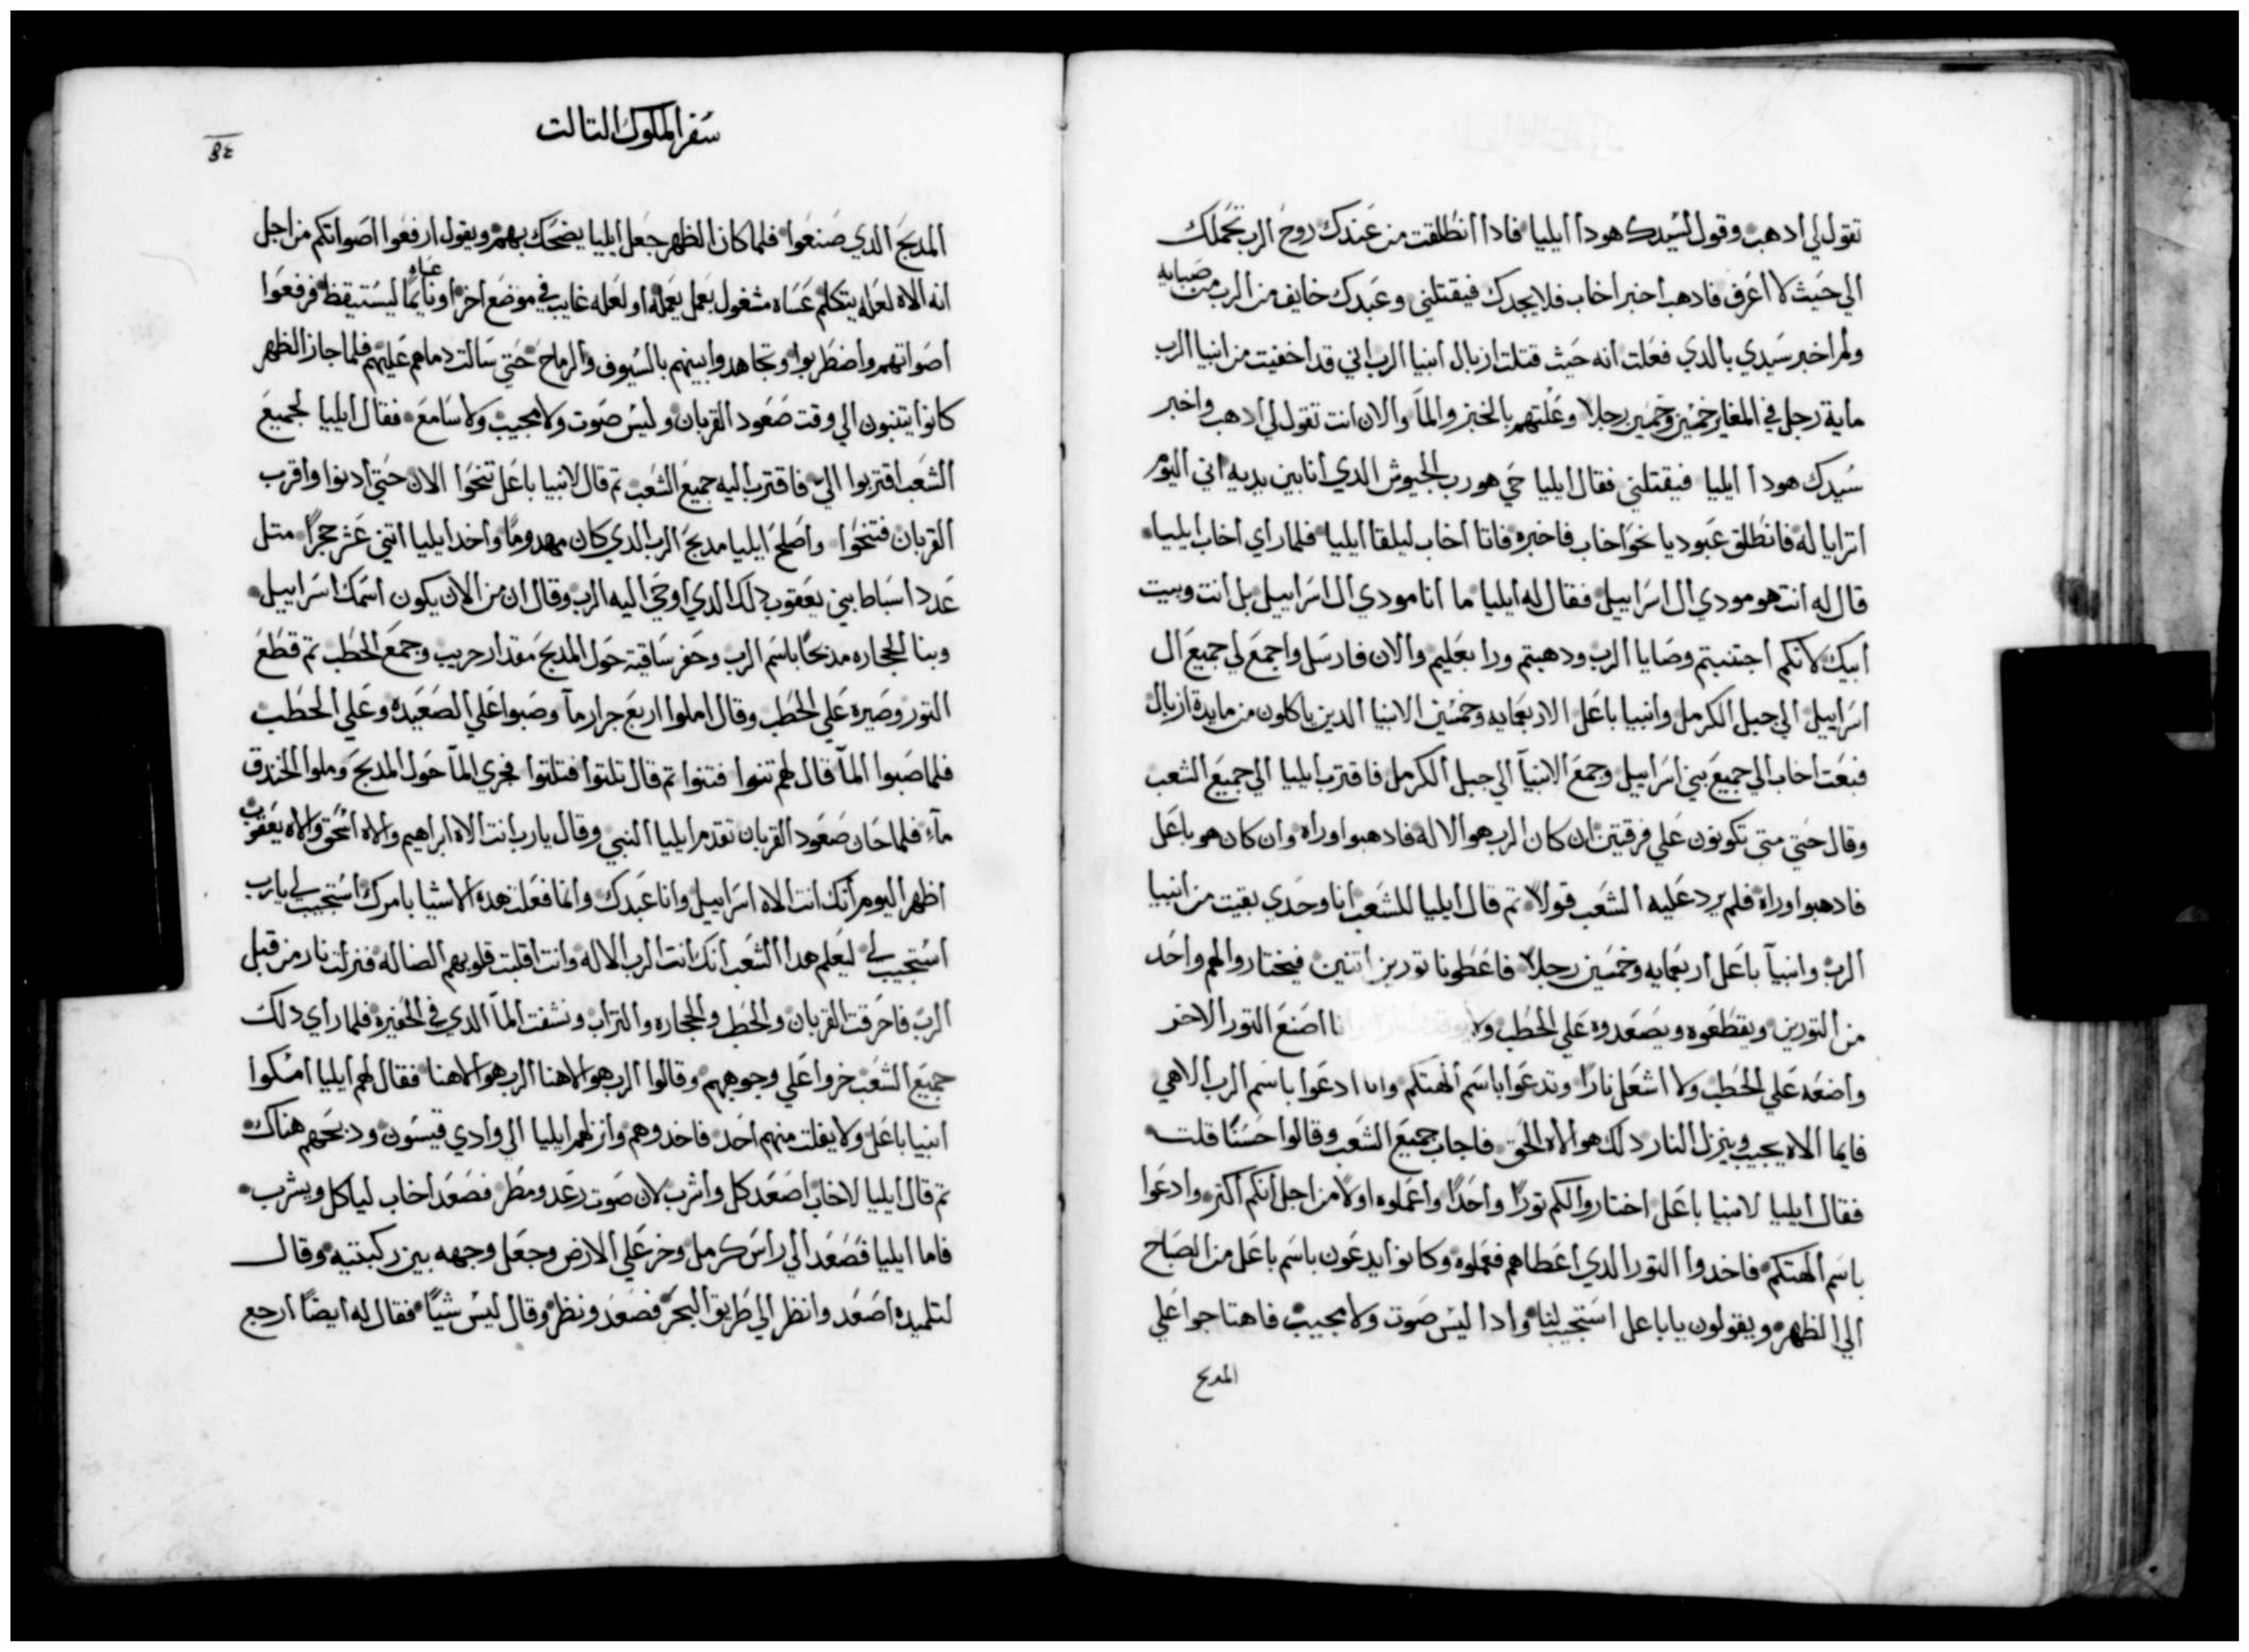 تقول لي ادهب وقول لسيدك هودا ايليا فادا انطلقت من عندك روح الرب تحملك
الي حيث لا اعرف فادهب اخبر اخاب فلا يجدك فيقتلني وعبدك خايف من الرب من صبايه
ولم اخبر سيدي بالدي فعلت انه حيث قتلت ازبال انبيا الرب اني قد اخفيت من انبيا الرب
ماية رجل في المغاير خمسين وخمسين رجلا وعلتهم بالخبز والمآ والان انت تقول لي ادهب واخبر
سيدك هودا ايليا فيقتلني فقال ايليا حي هو رب الجيوش الدي انا بين يديه اني اليوم
اترايا له فانطلق عبوديا نحو اخاب فاخبره فاتا اخاب ليلقا ايليا فلما راي اخاب ايليا
قال له انت هو مودي ال اسراييل فقال له ايليا ما انا مودي ال اسراييل بل انت وبيت
ابيك لانكم اجتنبتم وصايا الرب ودهبتم ورا بعليم والان فارسل واجمع لي جميع ال
اسراييل الي جبل الكرمل وانبيا باعل الاربعمايه وخمسين الانبيا الدين ياكلون من مايدة ازبال
فبعت اخاب الي جميع بني اسراييل وجمع الانبيآ الي جبل الكرمل فاقترب ايليا الي جميع الشعب
وقال حتي متي تكونون علي فرقتين ان كان الرب هو الاله فادهبوا وراه وان كان هو باعل
فادهبوا وراه فلم يرد عليه الشعب قولا تم قال ايليا للشعب انا وحدي بقيت من انبيا
الرب وانبيآ باعل اربعمايه وخمسين رجلا فاعطونا تورين اتنين فيختاروا لهم واحد
من التورين ويقطعوه ويصعدوه علي الحطب ولا انا اصنع التور الاخر
واضعه علي الحطب ولا اشعل نارا وتدعوا باسم الهتكم وانا ادعوا باسم الرب الاهي
فايما الاه يجيب وينزل النار دلك هو الاه الحق فاجاب جميع الشعب وقالوا حسنا قلت
فقال ايليا لانبيا باعل اختاروا لكم تورا واحدا واعملوه اولا من اجل انكم اكتر وادعوا
باسم الهتكم فاخدوا التور الدي اعطاهم فعملوه وكانوا يدعون باسم باعل من الصباح
الي الظهر ويقولون يا باعل استجيب لنا وادا ليس صوت ولا مجيب فاهتاجوا علي
المدبح
سفر الملوك التالت
المدبح الدي صنعوا فلما كان الظهر جعل ايليا يضحك بهم ويقول ارفعوا اصواتكم من اجل
انه الاه لعله يتكلم عساه مشغول بعمل يعمله او لعله غايب في موضع اخر او عساه نايما ليستيقظ فرفعوا
اصواتهم واضطربوا وتجاهدوا بينهم بالسيوف والرماح حتي سالت دماهم عليهم فلما جاز الظهر
كانوا يتنبون الي وقت صعود القربان وليس صوت ولا مجيب ولا سامع فقال ايليا لجميع
الشعب اقتربوا الي فاقترب اليه جميع الشعب تم قال لانبيا باعل تنحوا الان حتي ادنوا واقرب
القربان فتنحوا واصلح ايليا مدبح الرب الدي كان مهدوما واخد ايليا اتني عشر حجرا متل
عدد اسباط بني يعقوب دلك الدي اوحي اليه الرب وقال ان من الان يكون اسمك اسراييل
وبنا الحجاره مدبحا باسم الرب وحفر ساقية حول المدبح مقدار جريب وجمع الحطب تم قطع
التور وصيره علي الحطب وقال املوا اربع جرار مآ وصبوا علي الصعيده وعلي الحطب
فلما صبوا المآ قال لهم تنوا فتنوا تم قال تلتوا فتلتوا فجري المآ حول المدبح وملوا الخندق
مآء فلما حان صعود القربان تقدم ايليا النبي وقال يارب انت الاه ابراهيم والاه اسحق والاه يعقوب
اظهر اليوم انك انت الاه اسراييل وانا عبدك وانما فعلت هده الاشيا بامرك استجيب لي يارب
استجيب لي ليعلم هدا الشعب انك انت الرب الاله وانت اقلبت قلوبهم الضاله فنزلت نار من قبل
الرب فاحرقت القربان والحطب والحجاره والتراب ونشفت المآ الدي في الحفيره فلما راي دلك
جميع الشعب خروا علي وجوههم وقالوا الرب هو الاهنا الرب هو الاهنا فقال لهم ايليا امسكوا
انبيا باعل ولا يفلت منهم احد فاخدوهم وانزلهم ايليا الي وادي قيسون ودبحهم هناك
تم قال ايليا لاخاب اصعد كل واشرب لان صوت رعد ومطر فصعد اخاب لياكل ويشرب
فاما ايليا فصعد الي راس كرمل وخر علي الارض وجعل وجهه بين ركبتيه وقال
لتلميده اصعد وانظر الي طريق البحر فصعد ونظر وقال ليس شيا فقال له ايضا ارجع